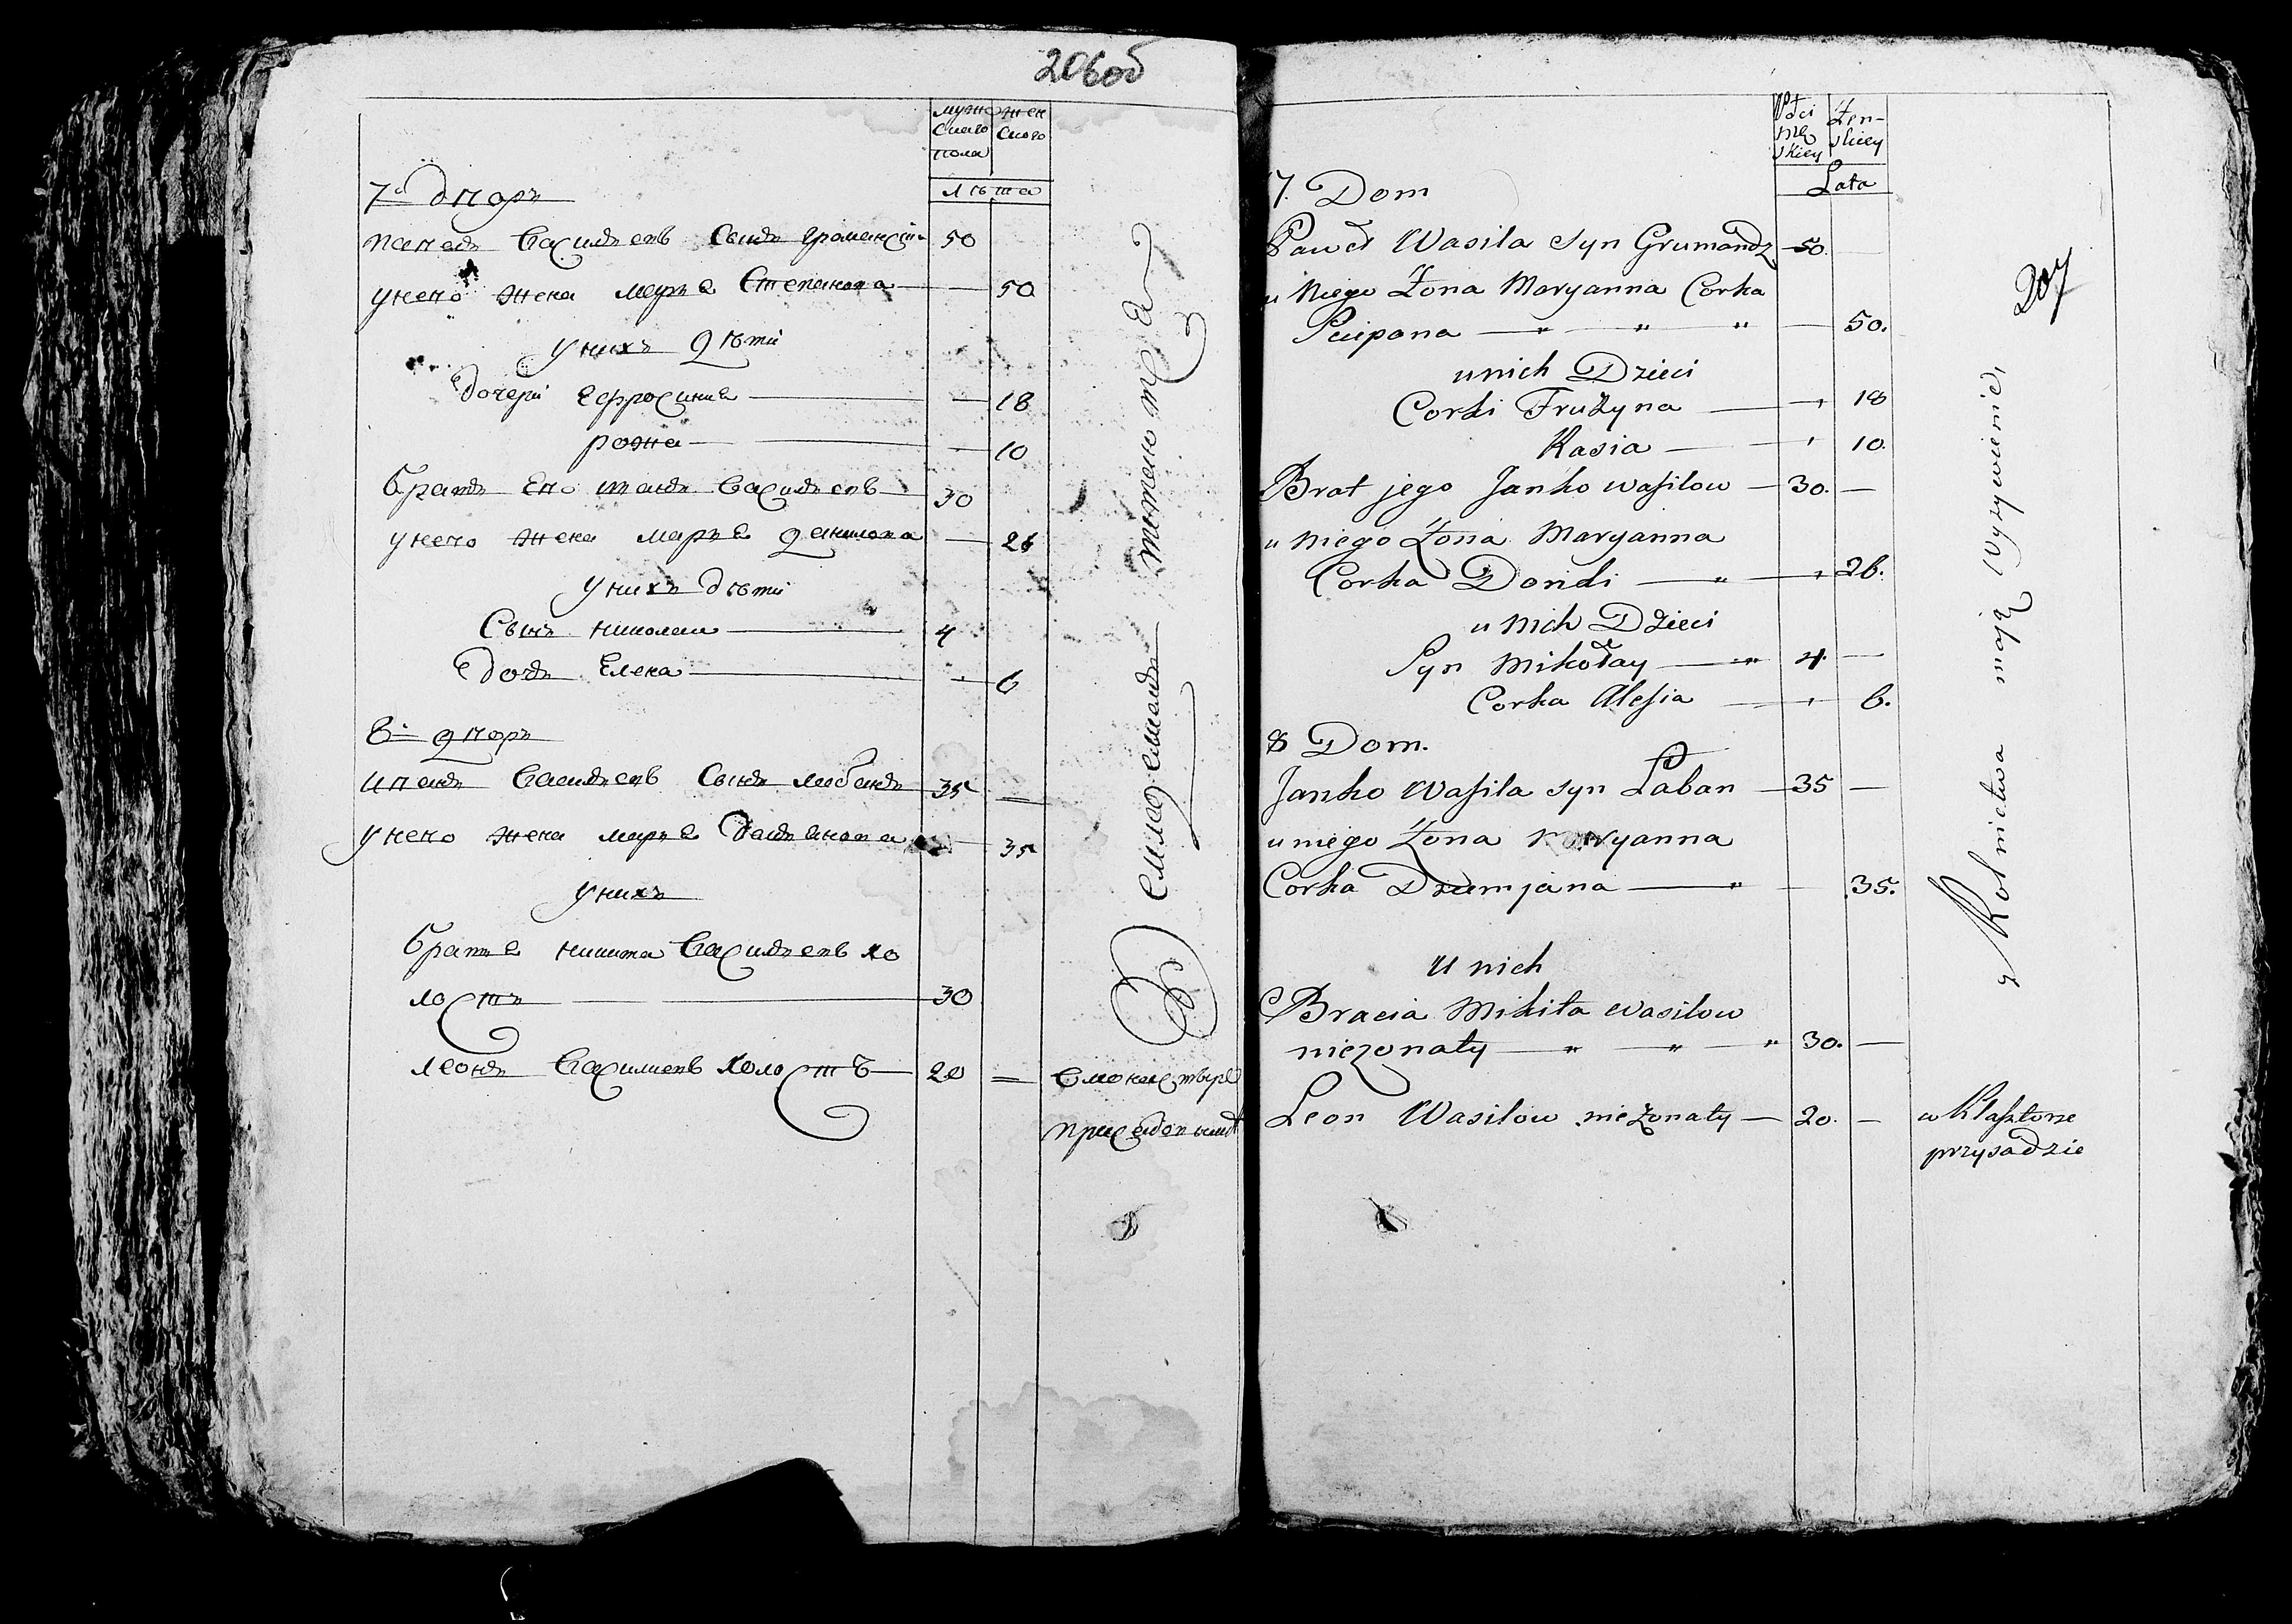 206об
мужескаго пола | женскаго
лѣта
7й дворъ
Павелъ Васильевъ сынъ 50
у него жена Марья Степанова — 50
у нихъ дѣти
дочери Ефросинья — 18
— 10
братъ его Васильевъ 30
у него жена Марья Данилова — 26
у нихъ дѣти
сынъ Николай 4
дочь Елена — 6
8й дворъ
Иванъ Васильевъ сынъ Лабанъ 35 —
у него жена Марья Дамьянова — 35
у нихъ
братья Никита Васильевъ хо
лостъ 30
Леонъ Васильевъ холостъ 20 —
в монастыре
207
Płci męskiey | Żenskiey
Lata
7. Dom
Paweł Wasila syn Grumandz 50. —
u Niego Żona Maryanna Corka
Sciepana — " — " " — 50.
u nich Dzieci
Corki Frużyna — 18
Kasia — 10.
Brat jego Janko wasilow — 30. —
u niego Żona Maryanna
Corka Danili — " — 26.
u Nich Dzieci
Syn Mikołay — " 4. —
Corka Alesia — 6.
8 Dom.
Janko Wasila syn Łaban — 35 —
u niego Żona Maryanna
Corka Dziemjana — " — 35.
U nich
Bracia Mikita wasilow
niezonaty — " — " — " 30. —
Leon Wasilow nieżonaty — 20. —
w Klasztorze
przysadzie
z Rolnictwa mają Wyzywienie,